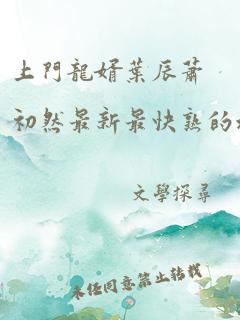 上門龍婿葉辰蕭
初然最新最快熟的
文學探尋
未经同意禁止转载